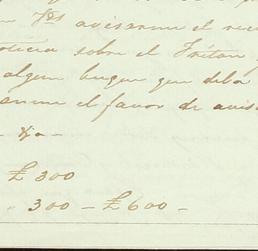 Vds avisarme el reci
noticia sobre el Tritón
algun buque que deba
el favor de avis
£ 300
" 300 - £600 -